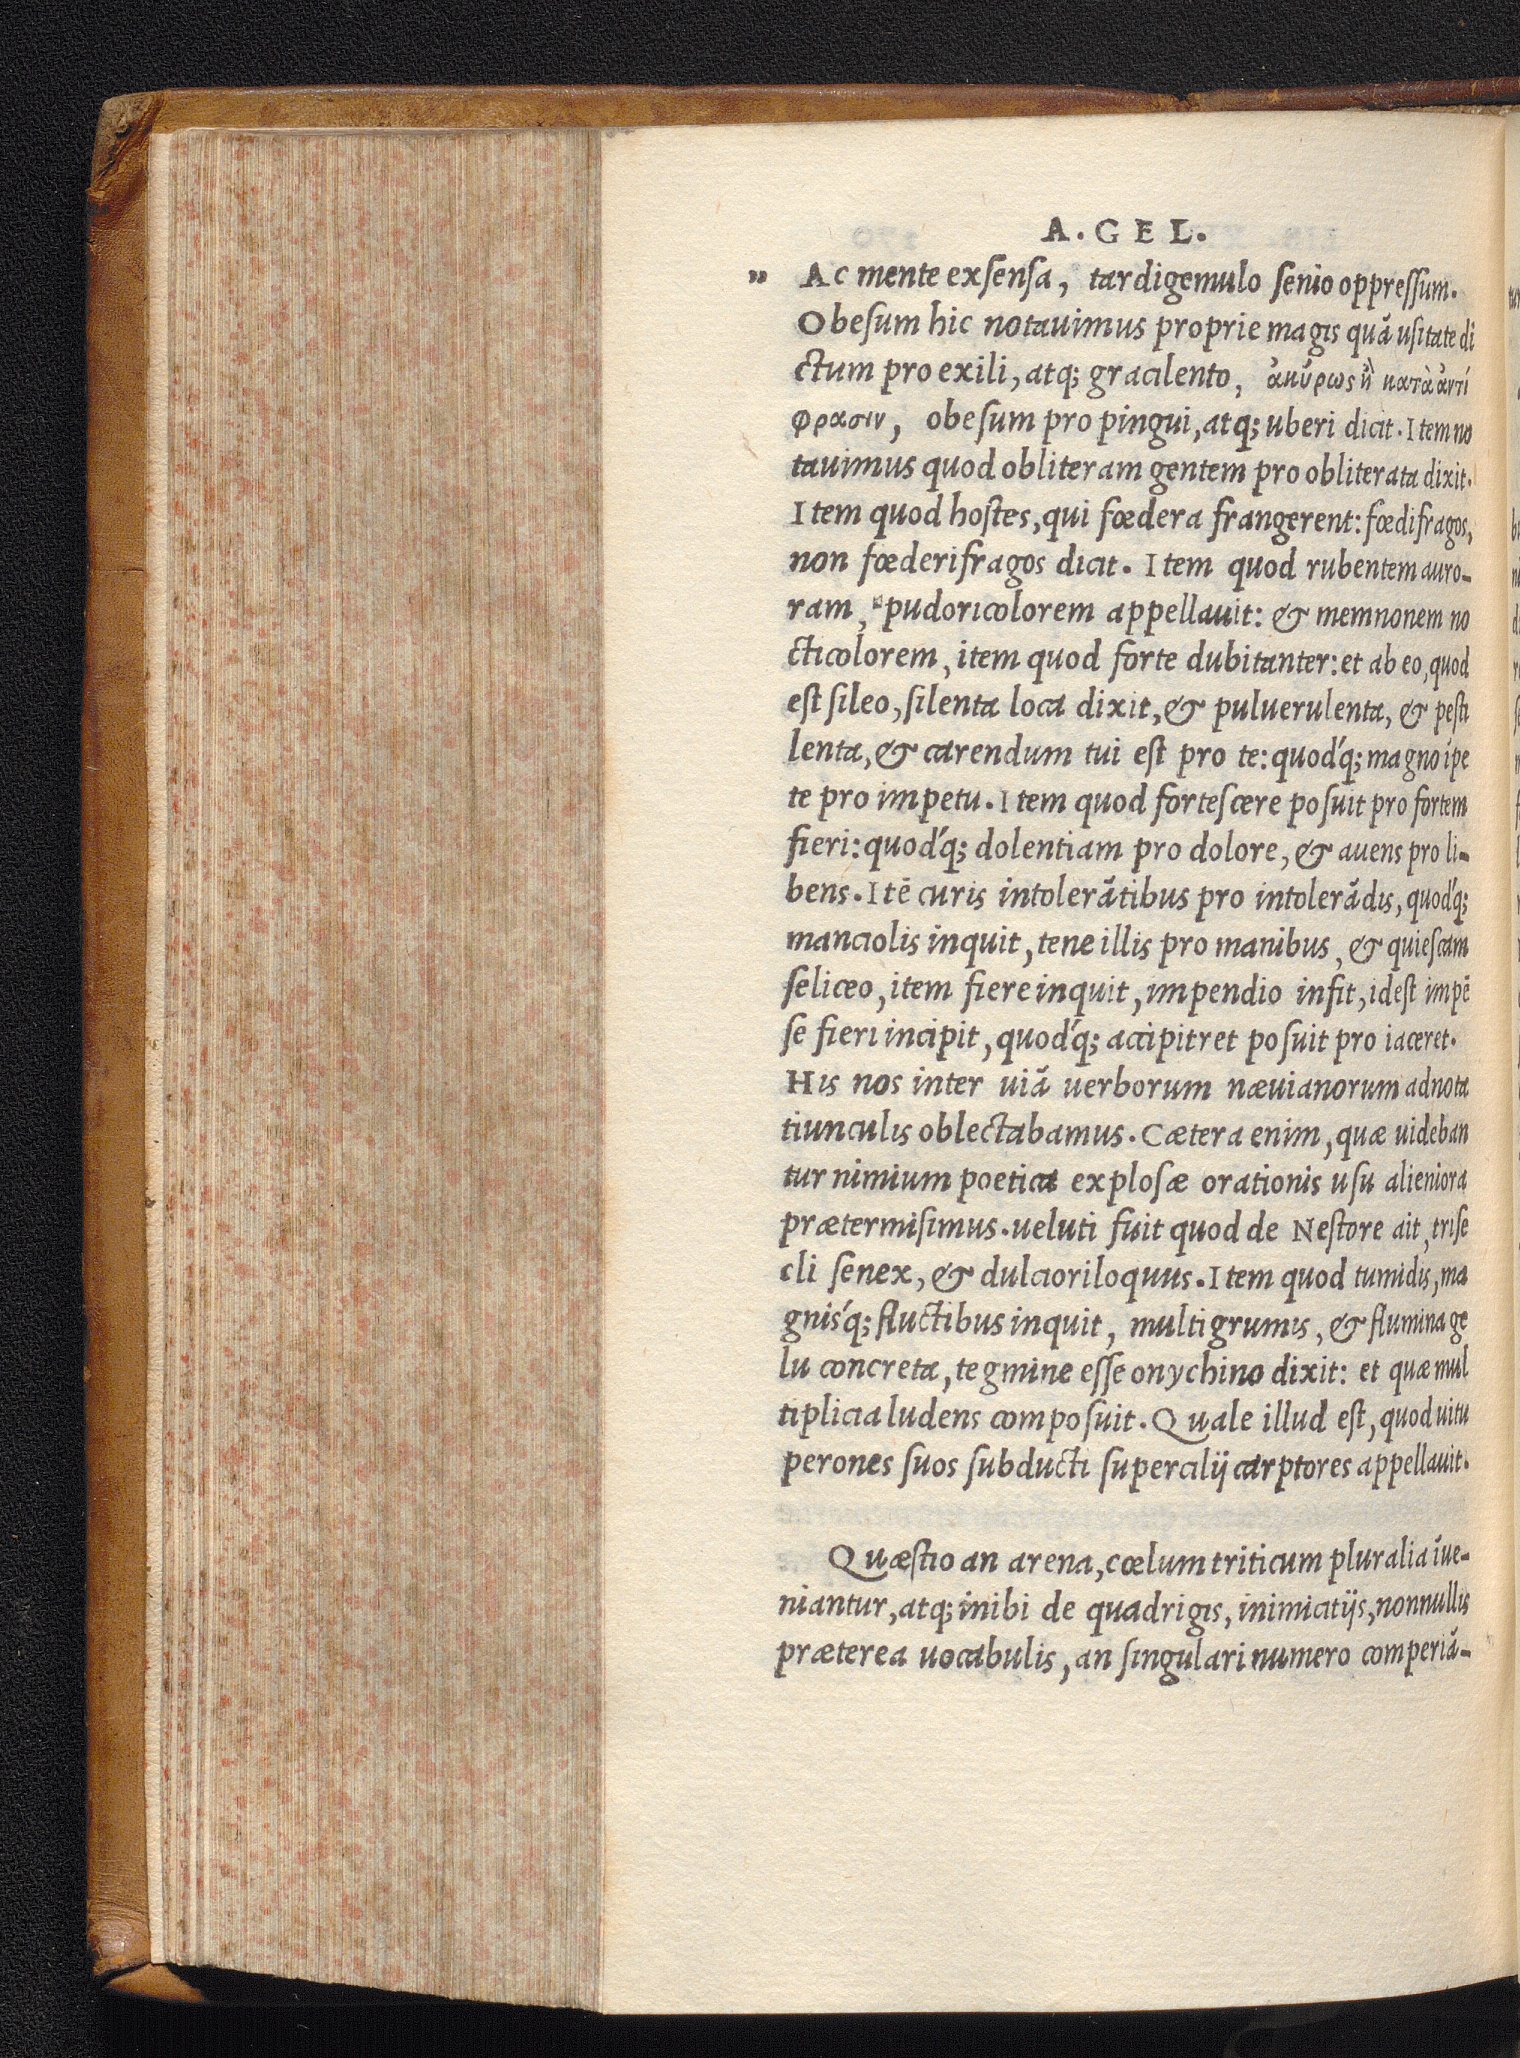 A. GEL.
" Ac mente exſenſa, tardigemulo ſenio oppreſſum.
Obeſum hic notauimus proprie magis quā uſitate di
ctum pro exili, atq; gracilento, ἀκύρως ἢ κατὰ ἀντί
φρασιν, obeſum pro pingui, atq; uberi dicit. Item no
tauimus quod obliteram gentem pro obliterata dixit.
Item quod hoſtes, qui fœdera frangerent: fœdifragos,
non fœderifragos dicit. Item quod rubentem auro-
ram, pudoricolorem appellauit: & memnonem no
cticolorem, item quod forte dubitanter: et ab eo, quod
eſt ſileo, ſilenta loca dixit, & puluerulenta, & peſti
lenta, & carendum tui eſt pro te: quod́q; magno īpe
te pro impetu. Item quod forteſcere poſuit pro fortem
fieri: quod́q; dolentiam pro dolore, & auens pro li-
bens. Itē curis intolerātibus pro intolerādis, quod́q;
manciolis inquit, tene illis pro manibus, & quieſcam
ſeliceo, item fiere inquit, impendio infit, ideſt impē
ſe fieri incipit, quod́q; accipitret poſuit pro iaceret.
His nos inter uiā uerborum næuianorum adnota
tiunculis oblectabamus. Cætera enim, quæ uideban
tur nimium poetica exploſæ orationis uſu alieniora
prætermiſimus. ueluti fuit quod de Neſtore ait, triſe
cli ſenex, & dulcioriloquus. Item quod tumidis, ma
gniś q; fluctibus inquit, multigrumis, & flumina ge
lu concreta, tegmine eſſe onychino dixit: et quæ mul
tiplicia ludens compoſuit. Quale illud eſt, quod uitu
perones ſuos ſubducti ſupercilij carptores appellauit.
Quæſtio an arena, cœlum triticum pluralia īue-
niantur, atq; inibi de quadrigis, inimicitijs, nonnullis
præterea uocabulis, an ſingulari numero comperiā-